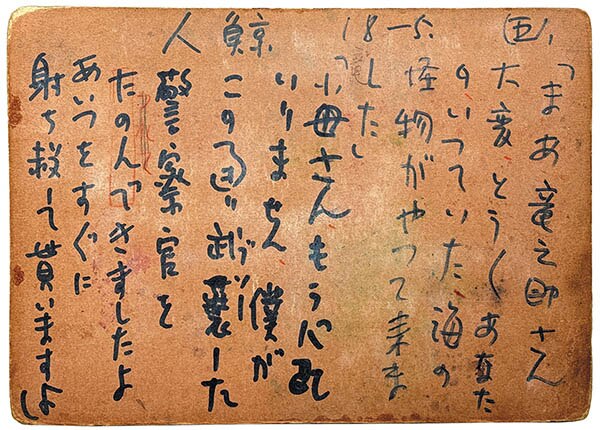 ㊄、「まあ竜之助さん
大変とう〱あなた
のいっていた海の
怪物がやって来ま
した」
18
「小母さんもう心配
いりません僕が
この通り した
警察官を
たのんできましたよ
あいつをすぐに
射ち殺して貰いますよ
鯨人